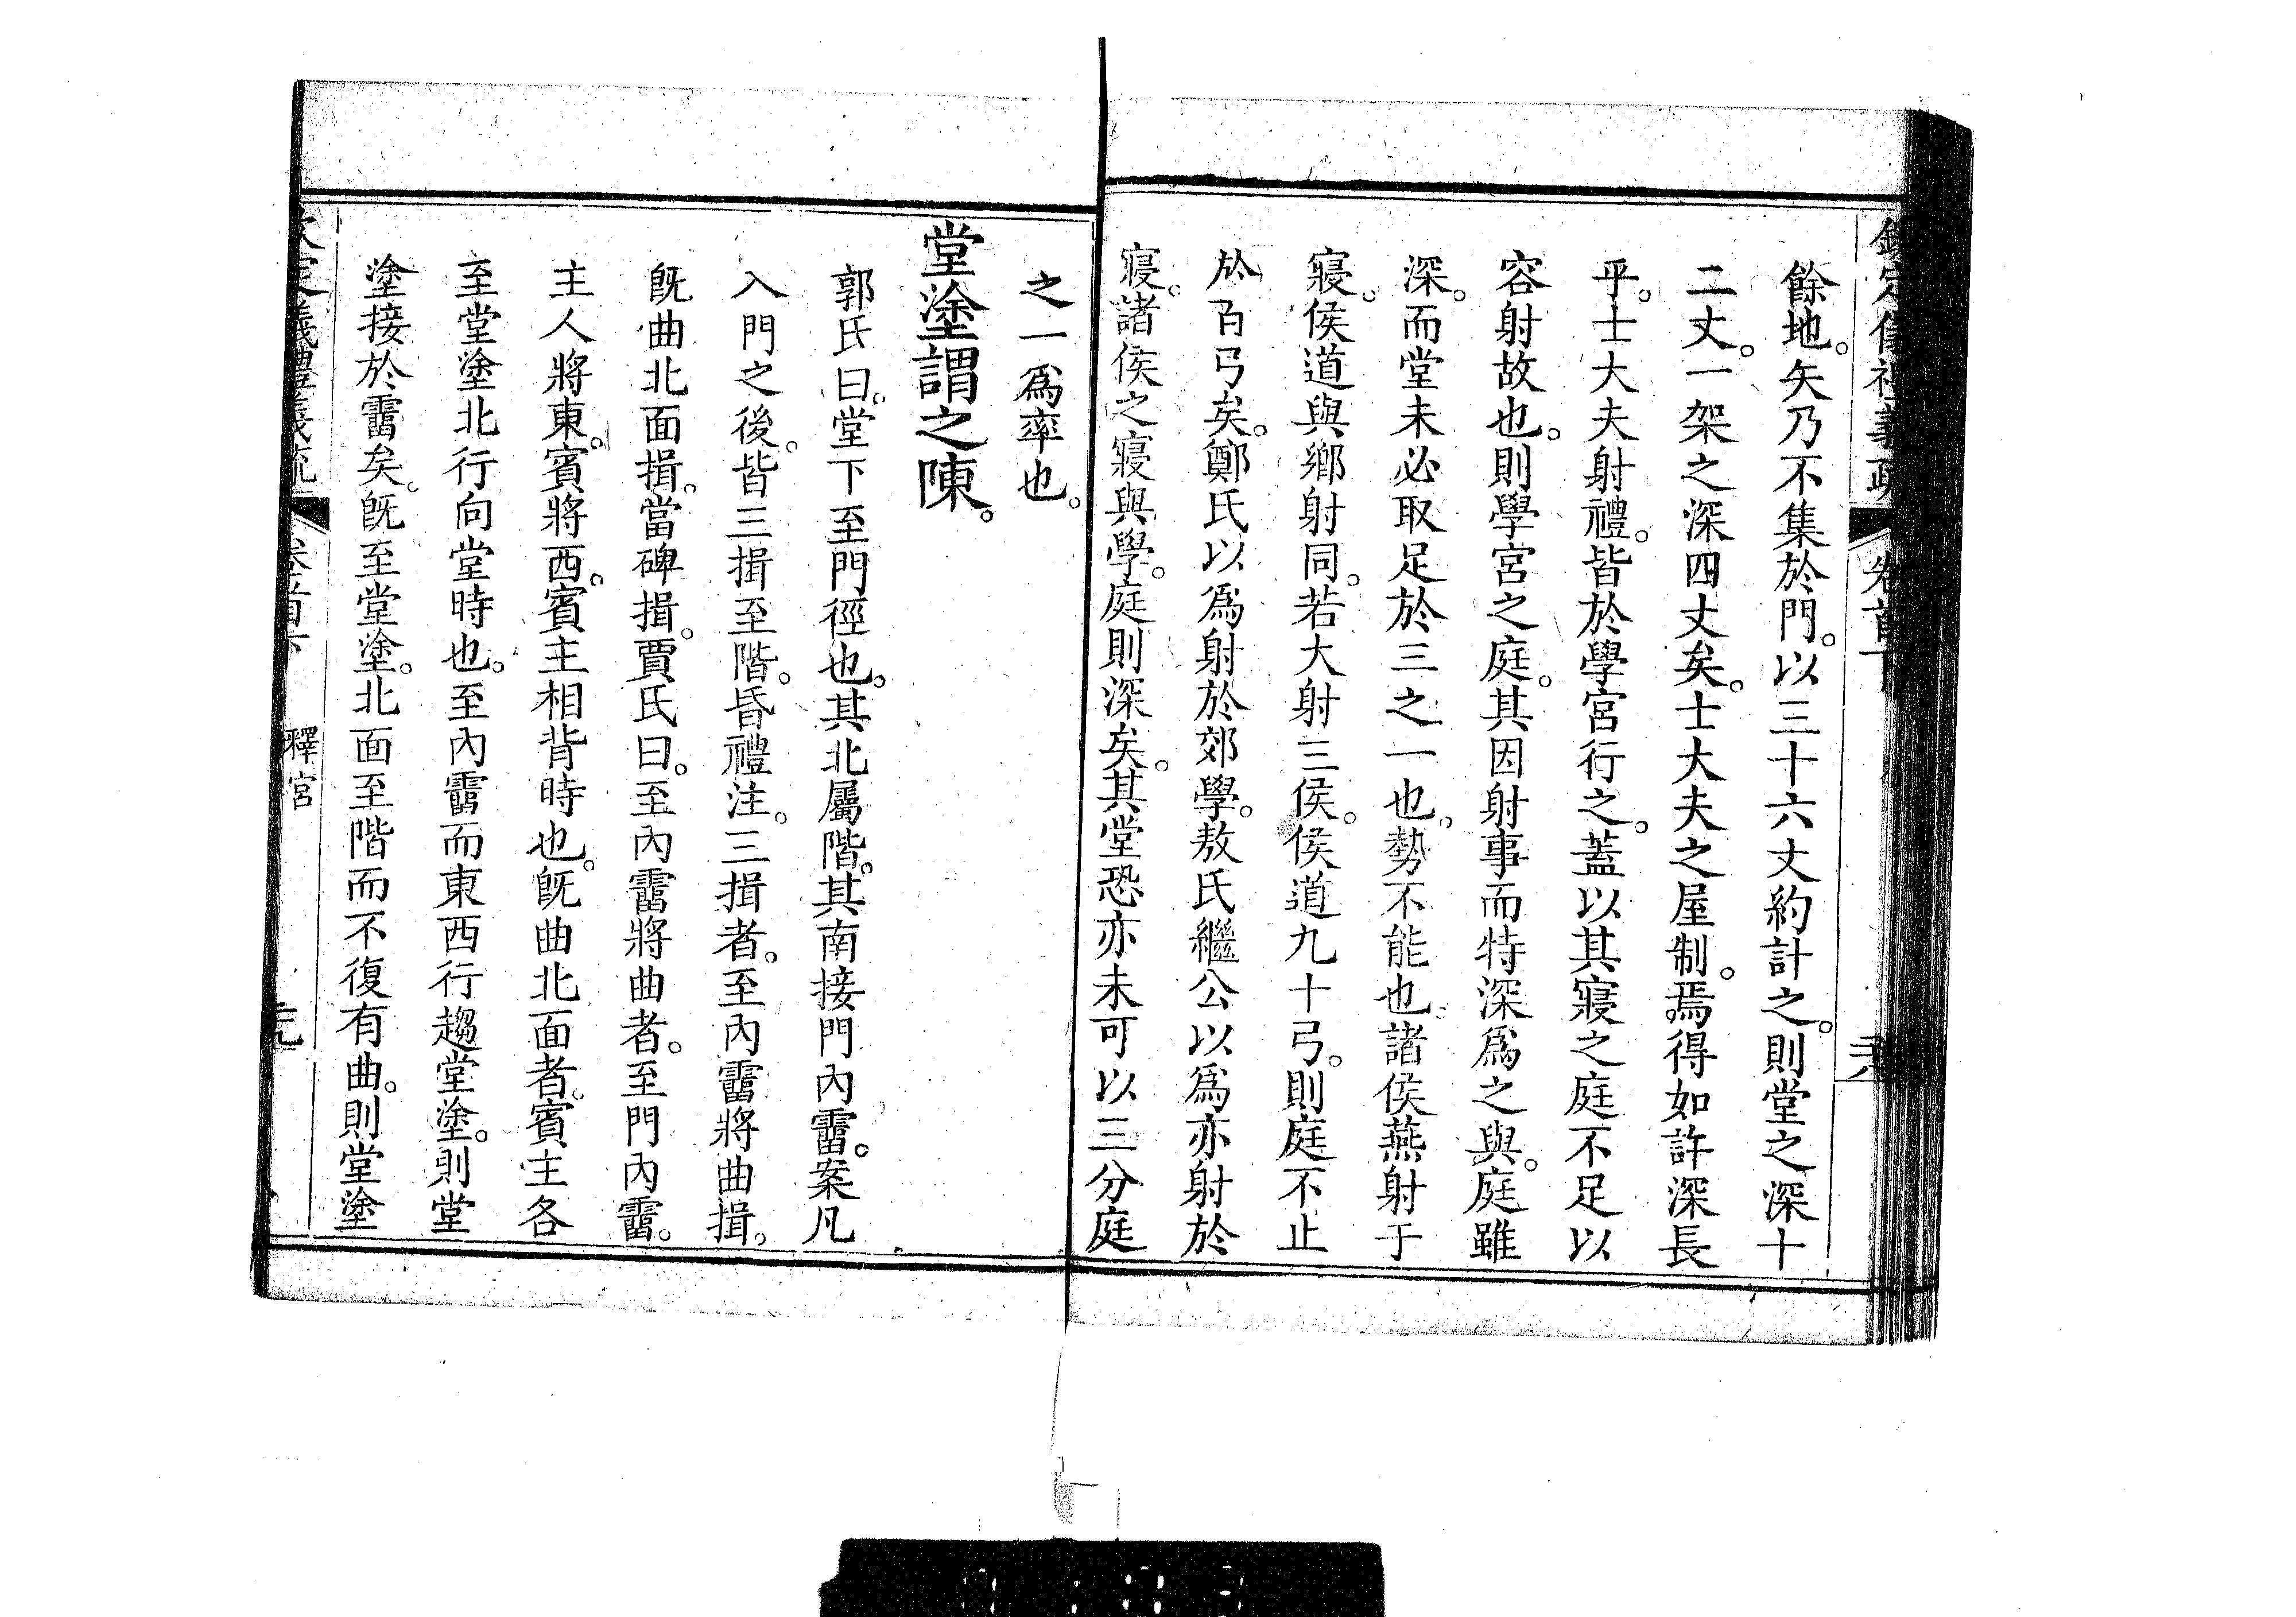 欽定儀禮義疏 卷首下
餘地。矢乃不集於門。以三十六丈約計之。則堂之深十
二丈。一架之深四丈矣。士大夫之屋制。焉得如許深長
乎。士大夫射禮。皆於學宮行之。蓋以其寢之庭不足以
容射故也。則學宮之庭。其因射事而特深爲之與。庭雖
深。而堂未必取足於三之一也。勢不能也。諸侯燕射于
寢。侯道與鄉射同。若大射三侯。侯道九十弓。則庭不止
於百弓矣。鄭氏以爲射於郊學。敖氏繼公以爲亦射於
寢。諸侯之寢與學。庭則深矣。其堂恐亦未可以三分庭
之一爲率也。
堂塗謂之陳。
郭氏曰。堂下至門徑也。其北屬階。其南接門內霤。案凡
入門之後。皆三揖至階。昏禮注。三揖者。至內霤將曲揖。
旣曲北面揖。當碑揖。賈氏曰。至內霤將曲者。至門內霤。
主人將東。賓將西。賓主相背時也。旣曲北面者。賓主各
至堂塗北行向堂時也。至內霤而東西行趨堂塗。則堂
塗接於霤矣。旣至堂塗。北面至階而不復有曲。則堂塗
欽定儀禮義疏 卷首下 釋宮